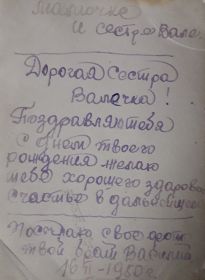 Мамочке
и сестре Вале
Дорогая сестра
Валечка!
Поздравляю тебя
с Днем твоего
рождения желаю
тебе хорошего здаровя
счастье в дальнейшем
Посылаю свое фото
твой брат Василий
1950г.